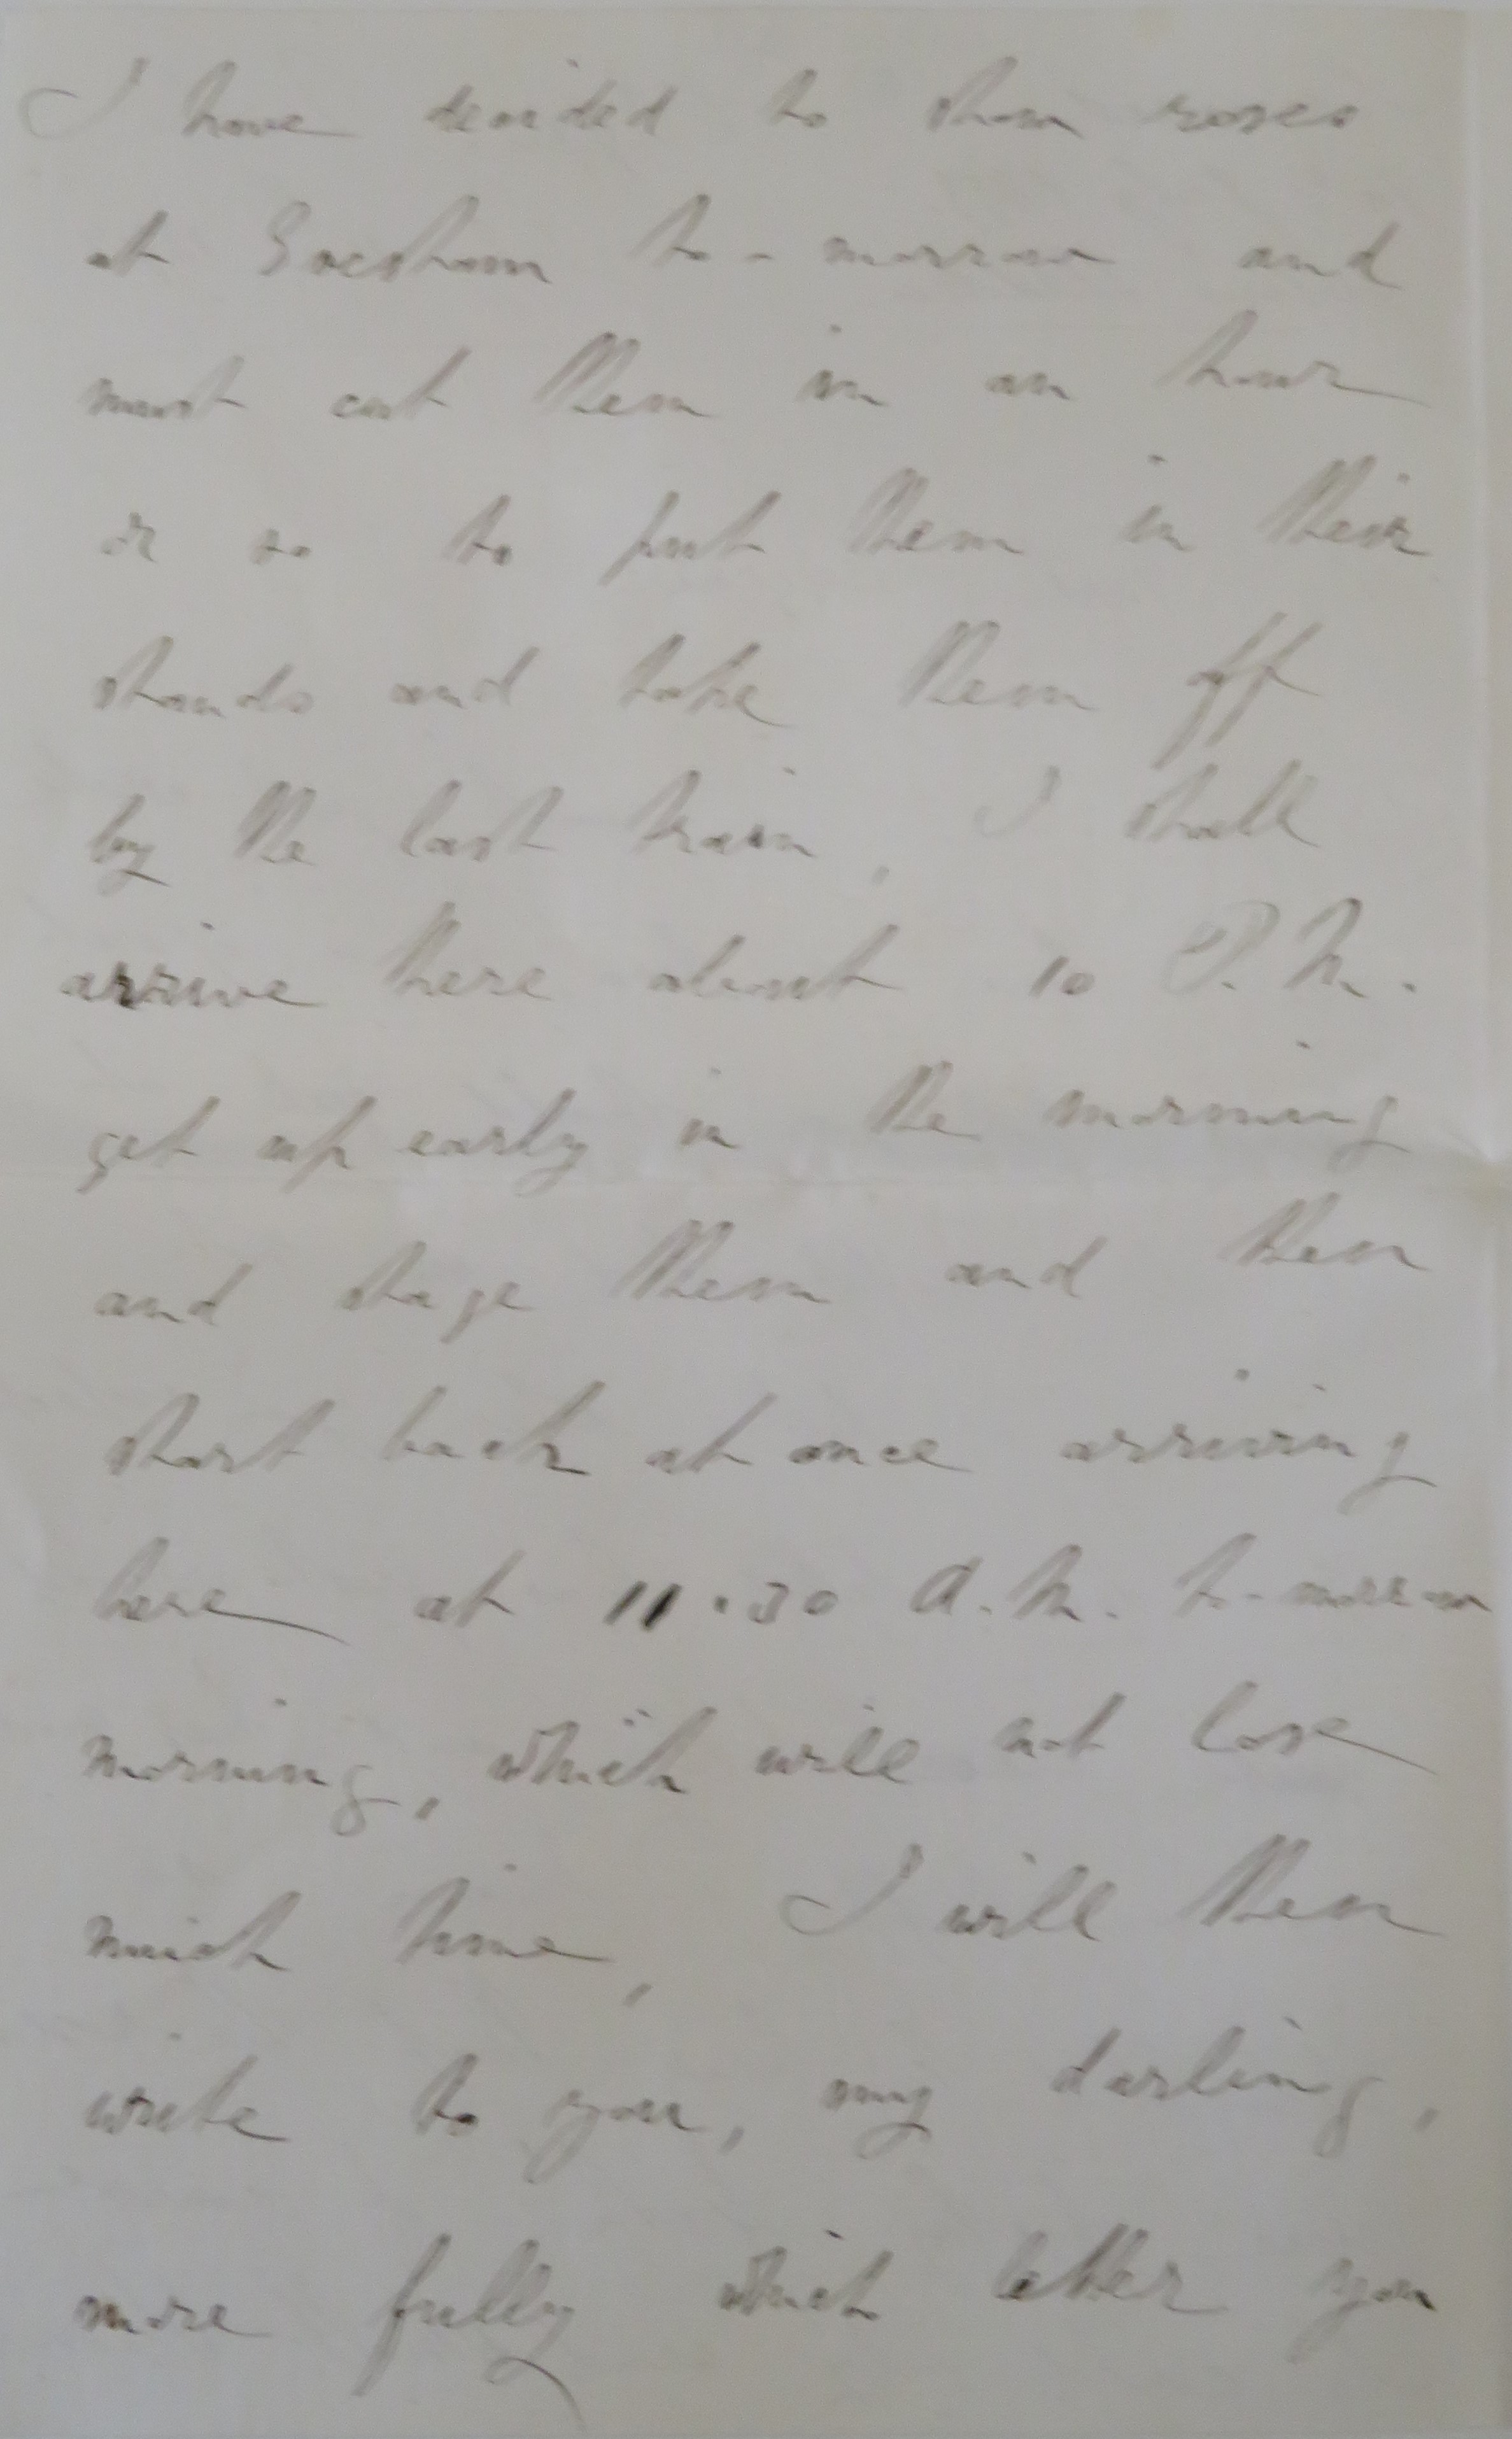 I have decided to show roses
at Evesham to-morrow and
must cut them in an hour
or so to put them in their
stands and take them off
by the last train, I shall
arrive there about 10 P.M.
get up early in the morning
and stage them and then
start back at once arriving
here at 11.30 A.M. to-morrow
morning, which will not lose
much time, I will then
write to you, my darling,
more fully which letter you